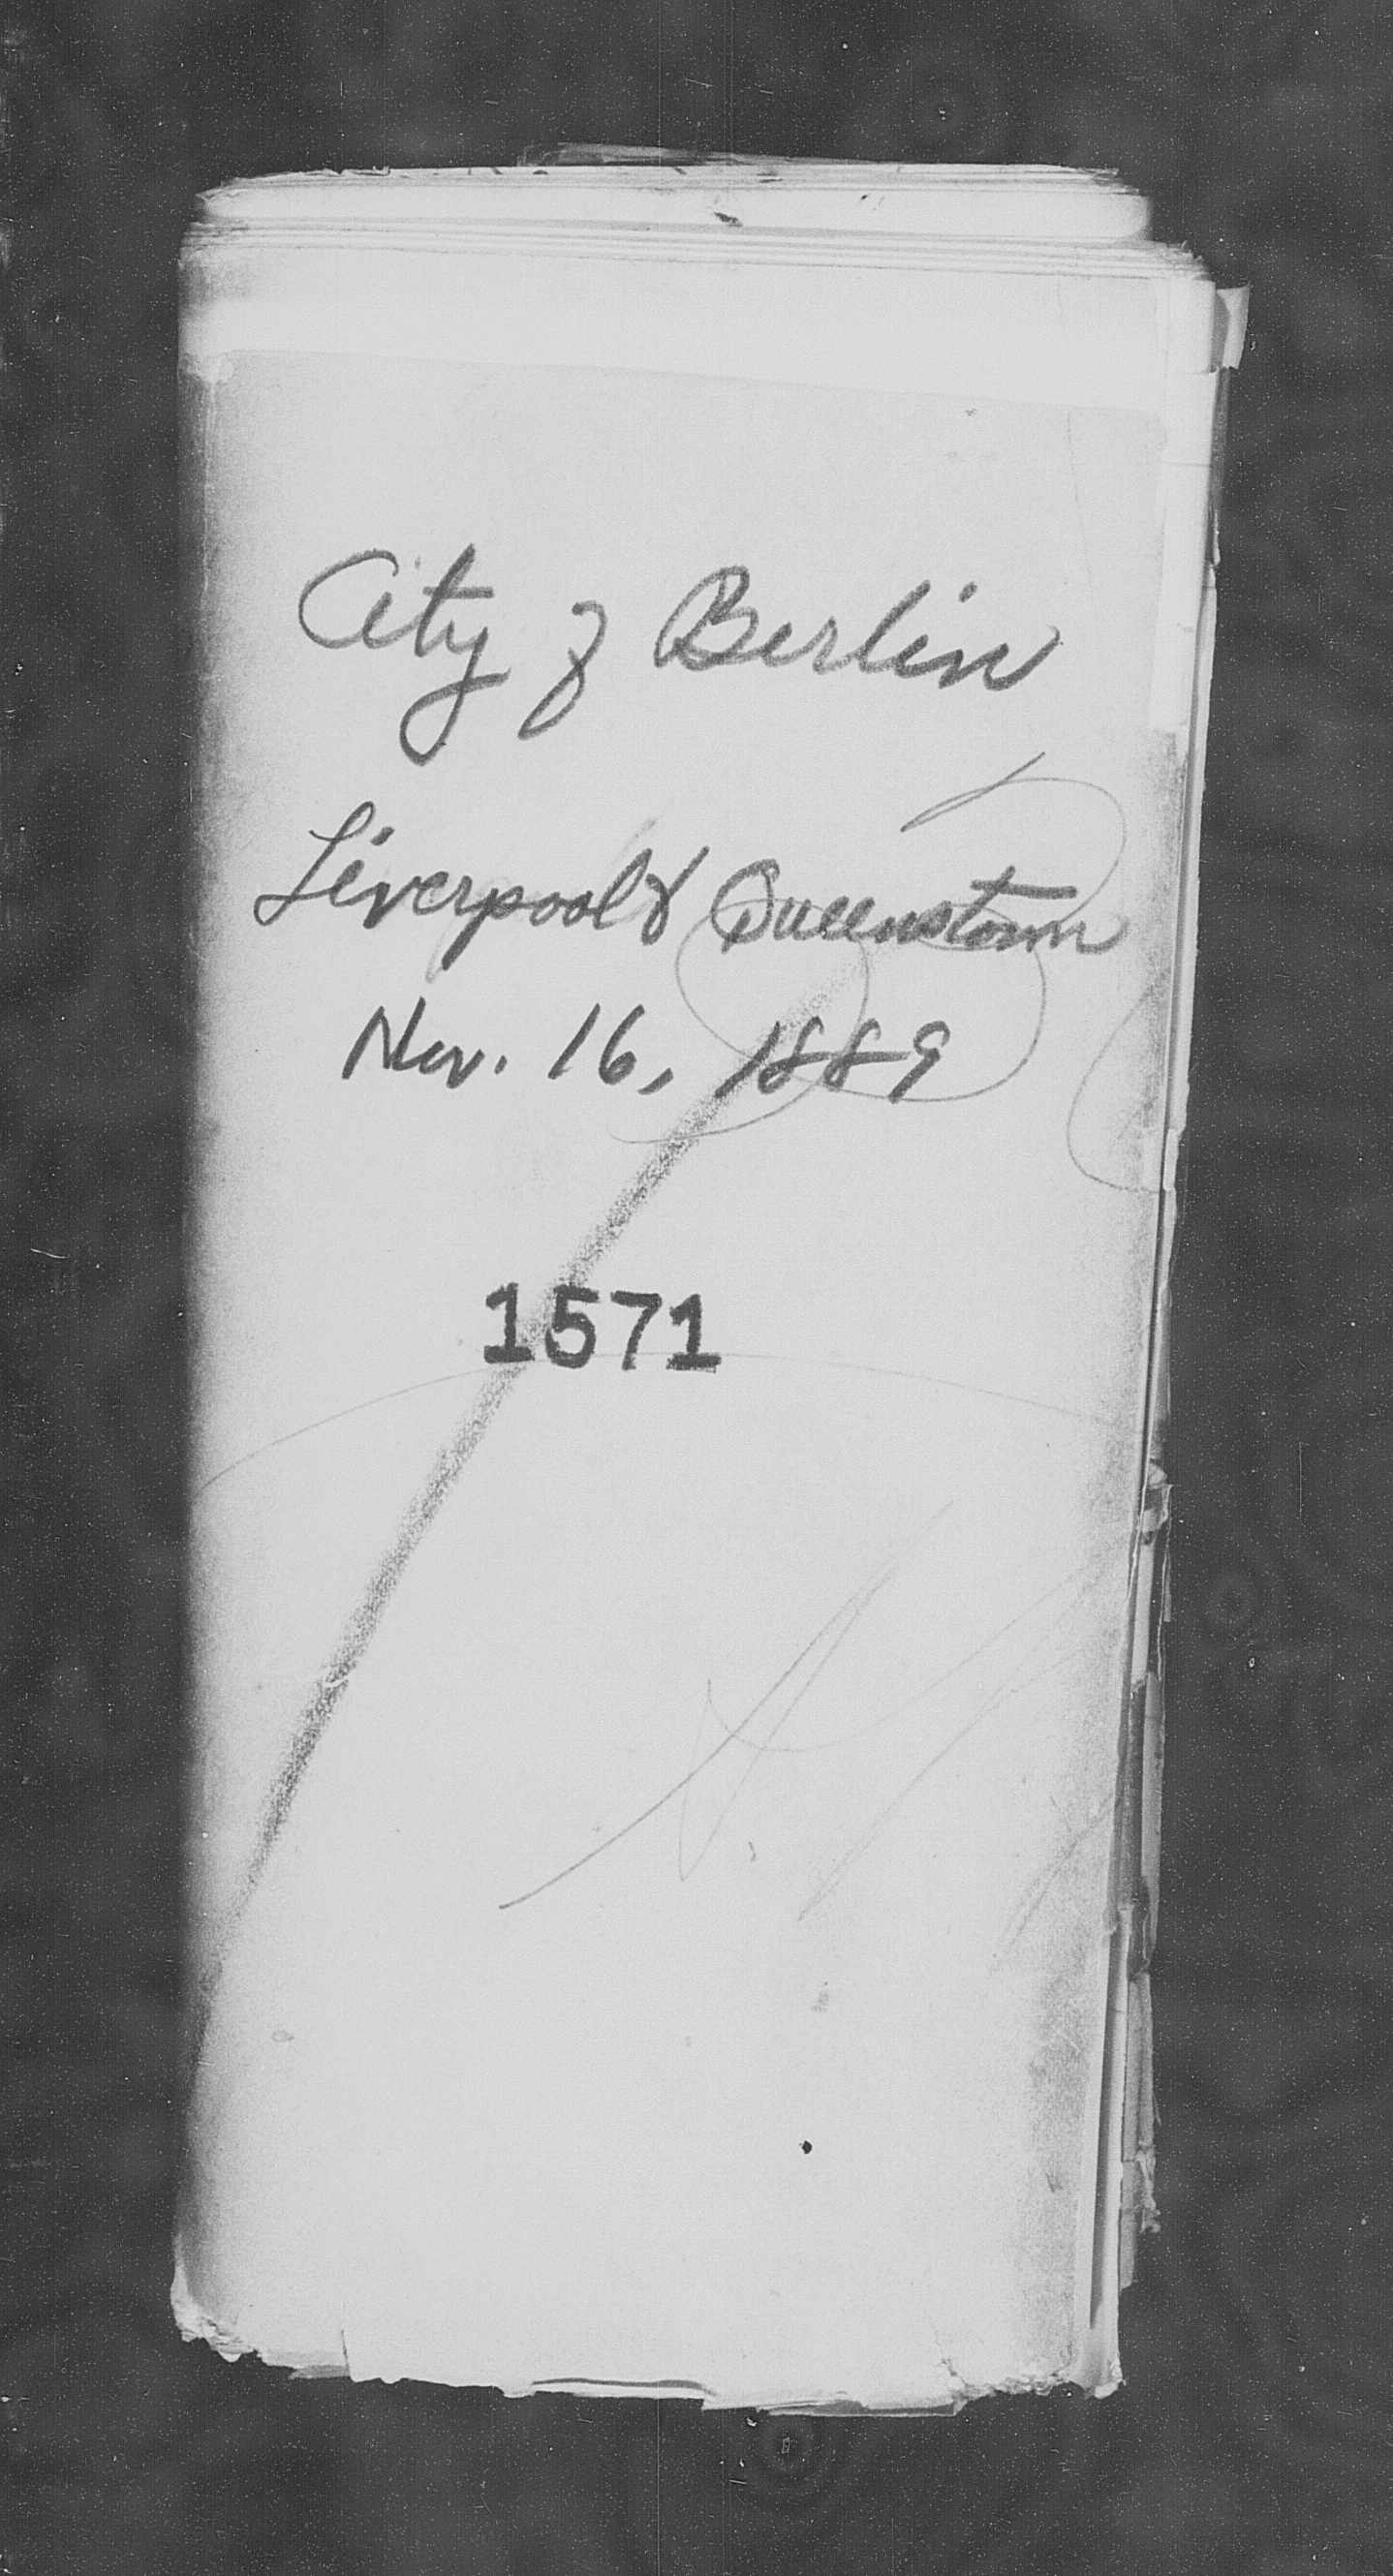 City of Berlin
Liverpool & Queenstown
Nov. 16, 1889
1571